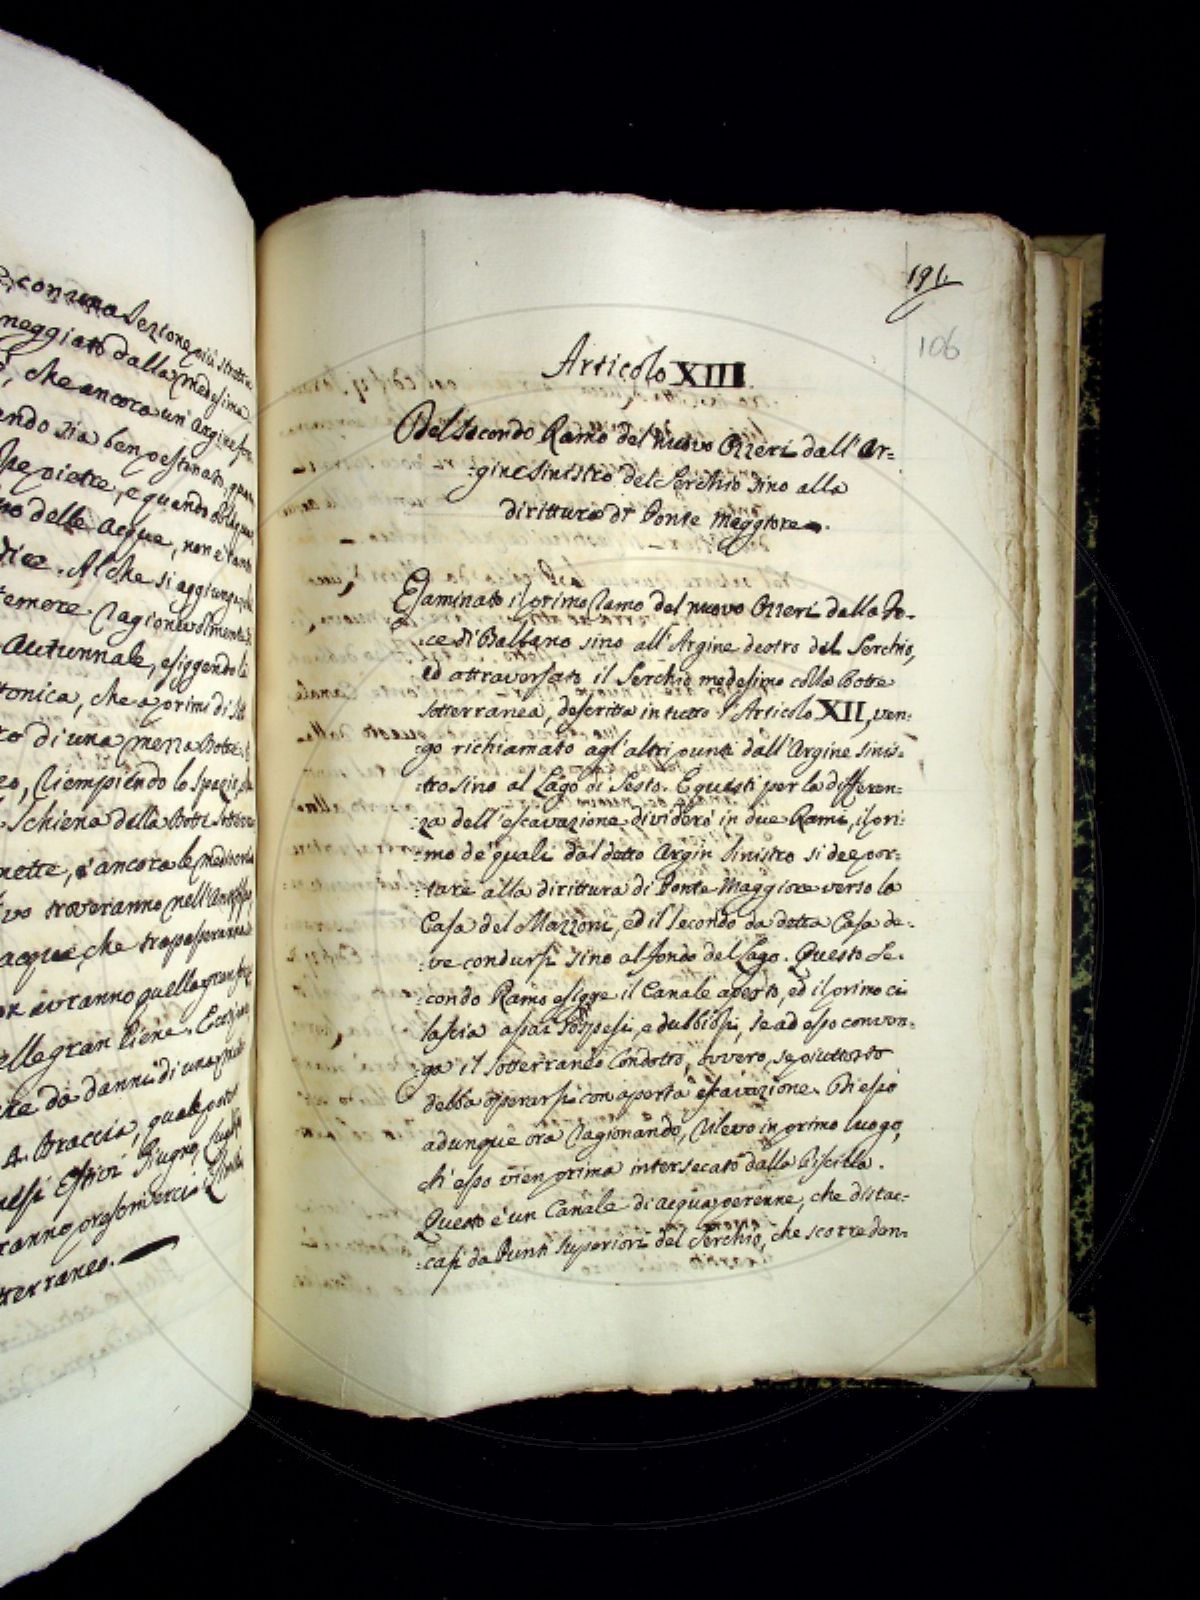 con una Sezione più stretta
neggiato dalla medesima
che ancora un' Argine for
endo sia ben costinato, quan
pietre, e quando
no delle acque, non è tanto
dice. Al che si aggiunga
temere ragionevolmente
Autunnale, esiggendo la
tonica, che a primi di
to di una mezza Botte
riempiendo lo spazio
Schiena della Botte Sotter
nette, e ancora le mediocri
vo troveranno nell'
acque, che trapasseranno
on avranno quella gran
elle gran Piene. Eccoci
te da danni di una
4. Braccia, quale potrà
uesi Estivi Giugno, Luglio
ranno
terraneo.
191.
106
Articolo XIII.
Del Secondo Ramo del nuovo Ozzeri dall'Ar=
:gine sinistro del Serchio sino alla
dirittura di Ponte Maggiore.
Esaminato il primo ramo del nuovo Ozzeri dalla Fo-
:ce di Balbano sino all'Argine destro del Serchio,
ed attraversato il Serchio medesimo colla Botte
sotterranea, descritta in tutto l'Articolo XII, ven-
:go richiamato agl'altri punti dall'Argine sinis-
:tro sino al Lago di Sesto. E questi per la differen-
:za dell'escavazione dividerò in due Rami, il pri-
:mo de quali dal detto Argin Sinistro si dee por-
:tare alla dirittura di Ponte Maggiore verso la
Casa del Mazzoni, ed il secondo da detta Casa de-
:ve condursi sino al fondo del Lago. Questo Se-
:condo Ramo esigge il Canale aperto, ed il primo ci
lascia assai sospesi, e dubbiosi, se ad esso conven-
:ga il sotterraneo Condotto, ovvero, se piuttosto
debba operarsi con aperta escavazione. Di esso
adunque ora ragionando, rilevo in primo luogo,
ch'esso vien prima intersecato dalla Piscilla.
Questo è un Canale di acqua perenne, che distac-
:casi da Punti Superiori del Serchio, che scorre den-